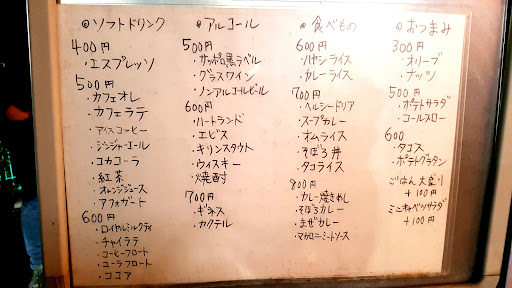 ◎ソフトドリンク
400円
・エスプレッソ
500円
・カフェオレ
・カフェラテ
・アイスコーヒー
・ジンジャーエール
・コカコーラ
・紅茶
・オレンジジュース
・アフォガード
600円
・ロイヤルミルクティ
・チャイラテ
・コーヒーフロート
・コーラフロート
・ココア
◎アルコール
500円
・サッポロ黒ラベル
・グラスワイン
・ノンアルコールビール
600円
・ハートランド
・エビス
・キリンスタウト
・ウィスキー
・焼酎
700円
・ギネス
・カクテル
◎食べもの
600円
・ハヤシライス
・カレーライス
700円
・ヘルシードリア
・スープカレー
・オムライス
・そぼろ丼
・タコライス
800円
・カレー焼きめし
・そぼろカレー
・まぜカレー
・マカロニミートソース
◎おつまみ
300円
・オリーブ
・ナッツ
500円
・ポテトサラダ
・コールスロー
600
・タコス
・ポテトグラタン
ごはん大盛り
+100円
ミニキャベツサラダ
+100円